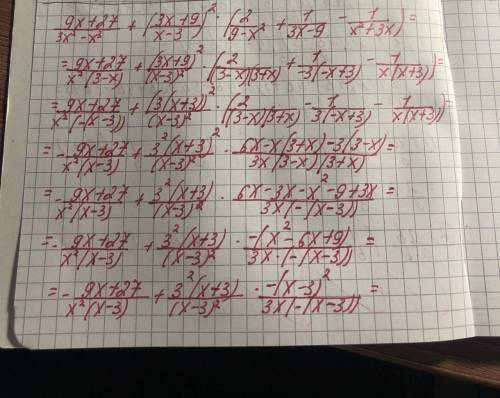 (9x+27)/(3x²-x²) + ((3x+9)/(x-3))² · (2/(9-x²) + 1/(3x-9) - 1/(x²+3x)) =
= (9x+27)/(x²(3-x)) + (3x+9)²/(x-3)² · (2/((3-x)(3+x)) + 1/(-3(-x+3)) - 1/(x(x+3))) =
= (9x+27)/(x²(-(x-3))) + (3(x+3))²/(x-3)² · (2/((3-x)(3+x)) - 1/(3(-x+3)) - 1/(x(x+3))) =
= - (9x+27)/(x²(x-3)) + 3²(x+3)²/(x-3)² · (6x-x(3+x)-3(3-x))/(3x(3-x)(3+x)) =
= - (9x+27)/(x²(x-3)) + 3²(x+3)/(x-3)² · (6x-3x-x²-9+3x)/(3x(-(x-3))) =
= - (9x+27)/(x²(x-3)) + 3²(x+3)/(x-3)² · (-(x²-6x+9))/(3x·(-(x-3))) =
= - (9x+27)/(x²(x-3)) + 3²(x+3)/(x-3)² · (-(x-3)²)/(3x(-(x-3))) =